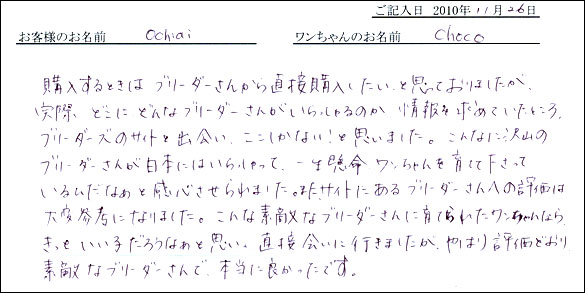 ご記入日 2010年 11月 26日
お客様のお名前 Ochiai ワンちゃんのお名前 Choco
購入するときはブリーダーさんから直接購入したい、と思っておりましたが、
実際、どこにどんなブリーダーさんがいらっしゃるのか 情報を求めていたところ、
ブリーダーズのサイトと出会い、ここしかない!と思いました。こんなに沢山の
ブリーダーさんが日本にはいらっしゃって、一生懸命 ワンちゃんを育て下さって
いるんだなぁと感心させられました。また、サイトにあるブリーダーさんへの評価は
大変参考になりました。こんな素敵なブリーダーさんに育てられたワンちゃんなら
きっといい子だろうなぁと思い、直接会いに行きましたが、やはり評価どおり
素敵なブリーダーさんで、本当に良かったです。